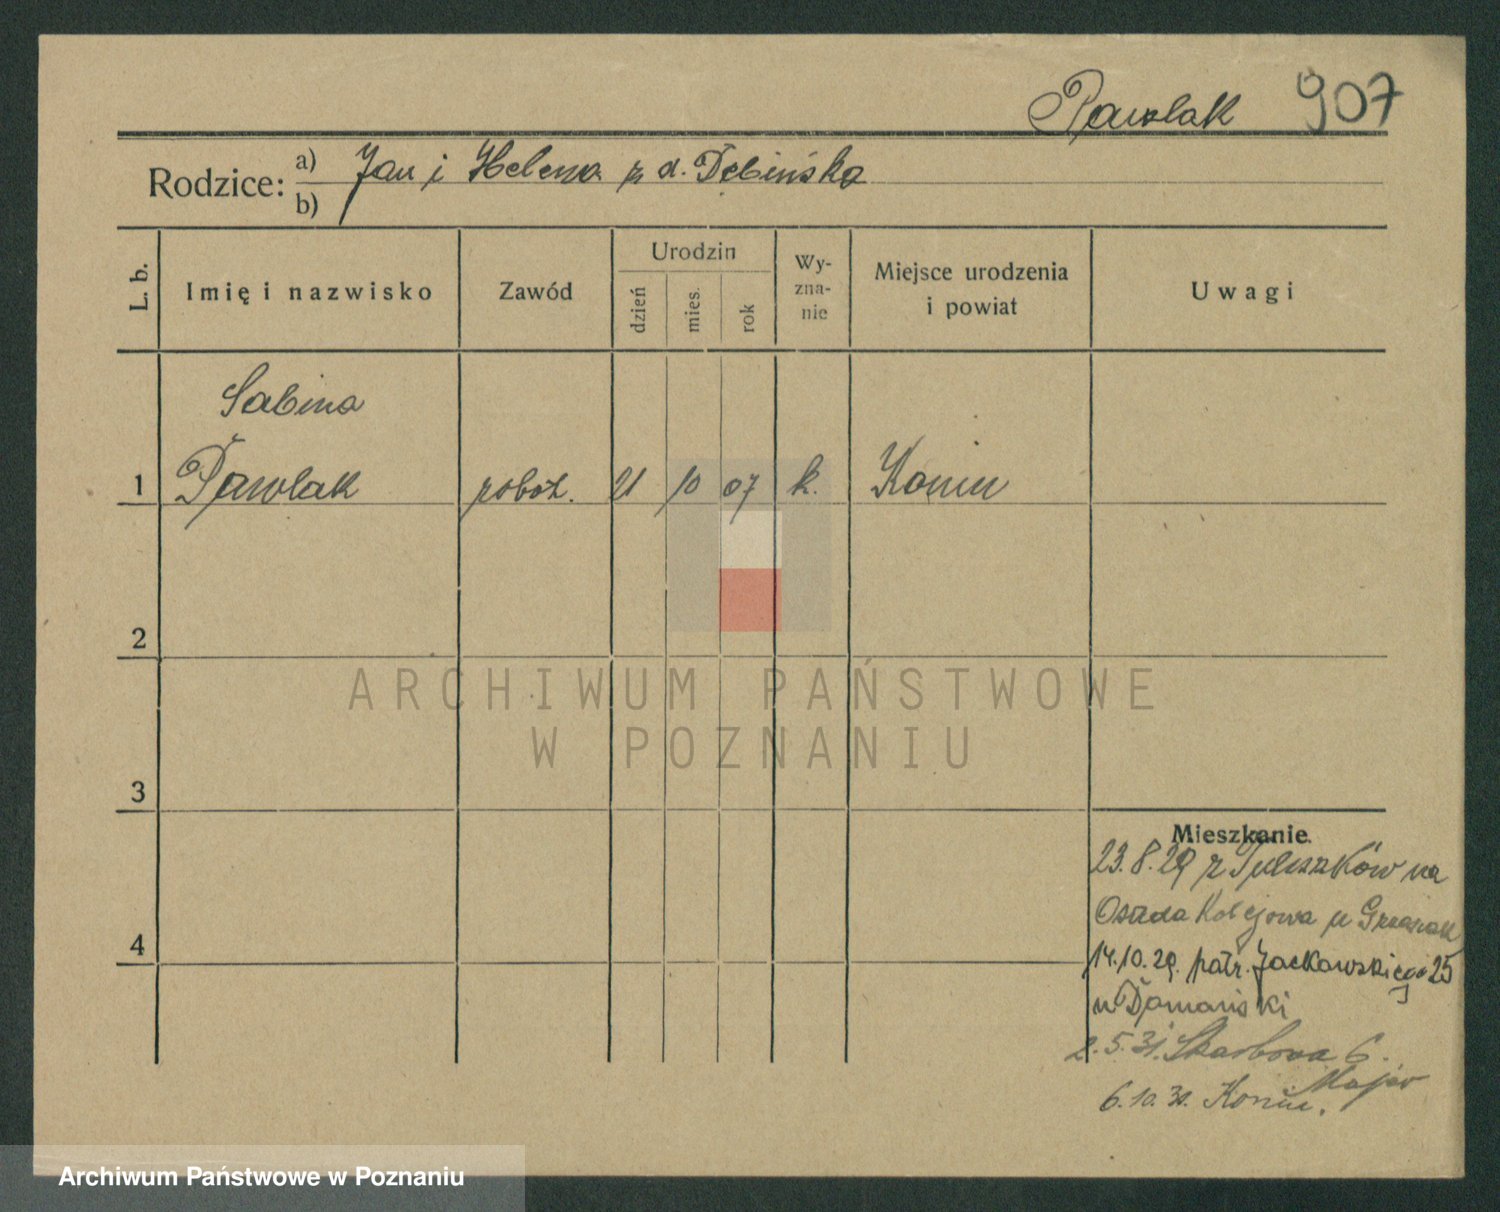 Pawlak 907
Rodzice: a) Jan i Helena z d. Dębińska
b)
L. b.
Imię i nazwisko
Zawód
Urodzin
dzień
mies.
rok
Wy-
zna-
nie
Miejsce urodzenia
i powiat
Uwagi
Sabina
1 Pawlak robot. 21 10 07 k. Konin
2
ARCHIWUM PAŃSTWOWE
W POZNANIU
3
Mieszkanie.
23.8.29 z Tuliszków na
Osada Kolejowa
4
14.10.29. patr. Jackowskiego 25
u
2.5.31. Skarbowa 6.
Major
6.10.31. Konin.
Archiwum Państwowe w Poznaniu